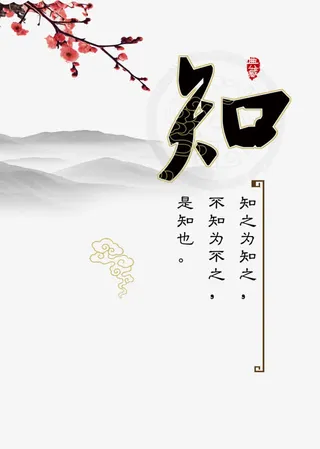 知
知之为知之，
不知为不之，
是知也。